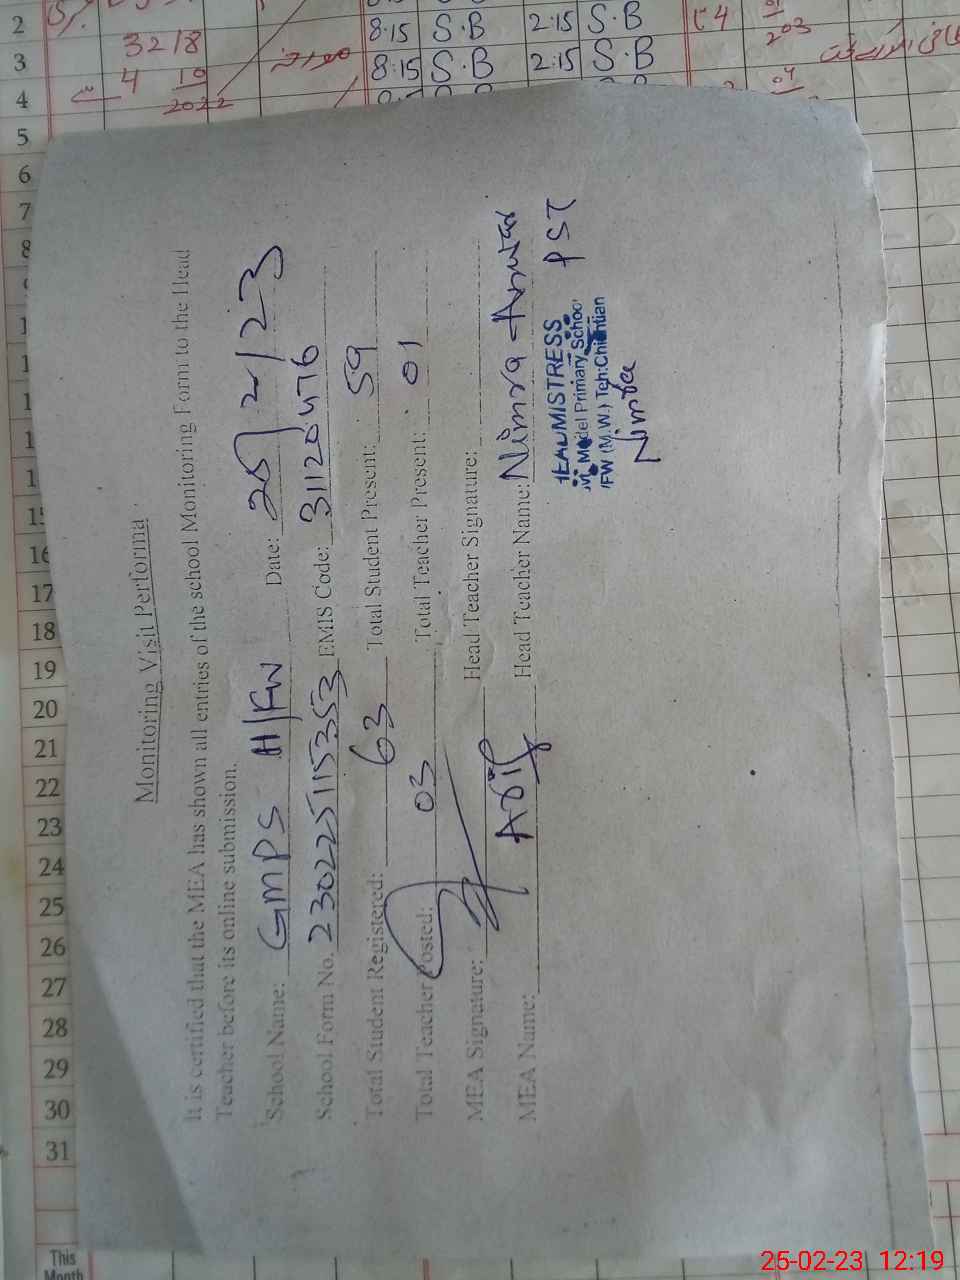 2
3
4
5
6
7
8
15
16
17
18
19
20
21
22
23
24
25
26
27
28
29
30
31
This
Month
3218
4 10
2022
8:15 S.B 2:15 S.B
8:15 S.B 2:15 S.B
203
Monitoring Visit Performa
It is certified that the MEA has shown all entries of the school Monitoring Form to the Head
Teacher before its online submission.
School Name: GMPS H/FW Date: 25/2/23
School Form No. 230225115353 EMIS Code: 31120476
Total Student Registered: 63 Total Student Present: 59
Total Teacher Posted: 03 Total Teacher Present: 01
MEA Signature: Head Teacher Signature:
MEA Name: Adil Head Teacher Name: Nimra Anwar PST
HEADMISTRESS
M. Model Primary School
/FW (M.W.) Teh: Chishtian
Nimra
25-02-23 12:19